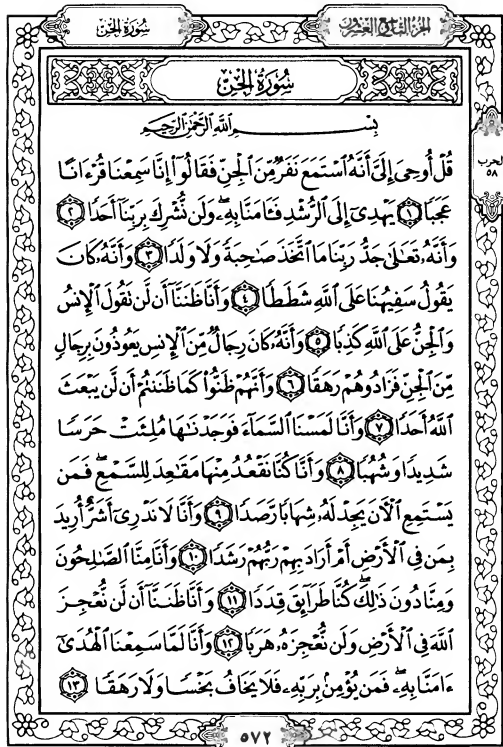 سُورَةُ الجِنّ
الجُزءُ التَّاسِعُ وَالعِشْرُونَ
سُورَةُ الجِنِّ
بِسْمِ اللَّهِ الرَّحْمَٰنِ الرَّحِيمِ
قُلْ أُوحِىَ إِلَىَّ أَنَّهُ ٱسْتَمَعَ نَفَرٌ مِّنَ ٱلْجِنِّ فَقَالُوٓا۟ إِنَّا سَمِعْنَا قُرْءَانًا
عَجَبًا ١ يَهْدِىٓ إِلَى ٱلرُّشْدِ فَـَٔامَنَّا بِهِۦ ۖ وَلَن نُّشْرِكَ بِرَبِّنَآ أَحَدًا ٢
وَأَنَّهُۥ تَعَٰلَىٰ جَدُّ رَبِّنَا مَا ٱتَّخَذَ صَٰحِبَةً وَلَا وَلَدًا ٣ وَأَنَّهُۥ كَانَ
يَقُولُ سَفِيهُنَا عَلَى ٱللَّهِ شَطَطًا ٤ وَأَنَّا ظَنَنَّآ أَن لَّن نَقُولَ ٱلْإِنسُ
وَٱلْجِنُّ عَلَى ٱللَّهِ كَذِبًا ٥ وَأَنَّهُۥ كَانَ رِجَالٌ مِّنَ ٱلْإِنسِ يَعُوذُونَ بِرِجَالٍ
مِّنَ ٱلْجِنِّ فَزَادُوهُمْ رَهَقًا ٦ وَأَنَّهُمْ ظَنُّوا۟ كَمَا ظَنَنتُمْ أَن لَّن يَبْعَثَ
ٱللَّهُ أَحَدًا ٧ وَأَنَّا لَمَسْنَا ٱلسَّمَآءَ فَوَجَدْنَٰهَا مُلِئَتْ حَرَسًا
شَدِيدًا وَشُهُبًا ٨ وَأَنَّا كُنَّا نَقْعُدُ مِنْهَا مَقَٰعِدَ لِلسَّمْعِ ۖ فَمَن
يَسْتَمِعِ ٱلْـَٔانَ يَجِدْ لَهُۥ شِهَابًا رَّصَدًا ٩ وَأَنَّا لَا نَدْرِىٓ أَشَرٌّ أُرِيدَ
بِمَن فِى ٱلْأَرْضِ أَمْ أَرَادَ بِهِمْ رَبُّهُمْ رَشَدًا ١٠ وَأَنَّا مِنَّا ٱلصَّٰلِحُونَ
وَمِنَّا دُونَ ذَٰلِكَ ۖ كُنَّا طَرَآئِقَ قِدَدًا ١١ وَأَنَّا ظَنَنَّآ أَن لَّن نُّعْجِزَ
ٱللَّهَ فِى ٱلْأَرْضِ وَلَن نُّعْجِزَهُۥ هَرَبًا ١٢ وَأَنَّا لَمَّا سَمِعْنَا ٱلْهُدَىٰٓ
ءَامَنَّا بِهِۦ ۖ فَمَن يُؤْمِنۢ بِرَبِّهِۦ فَلَا يَخَافُ بَخْسًا وَلَا رَهَقًا ١٣
الحزب
٥٨
٥٧٢